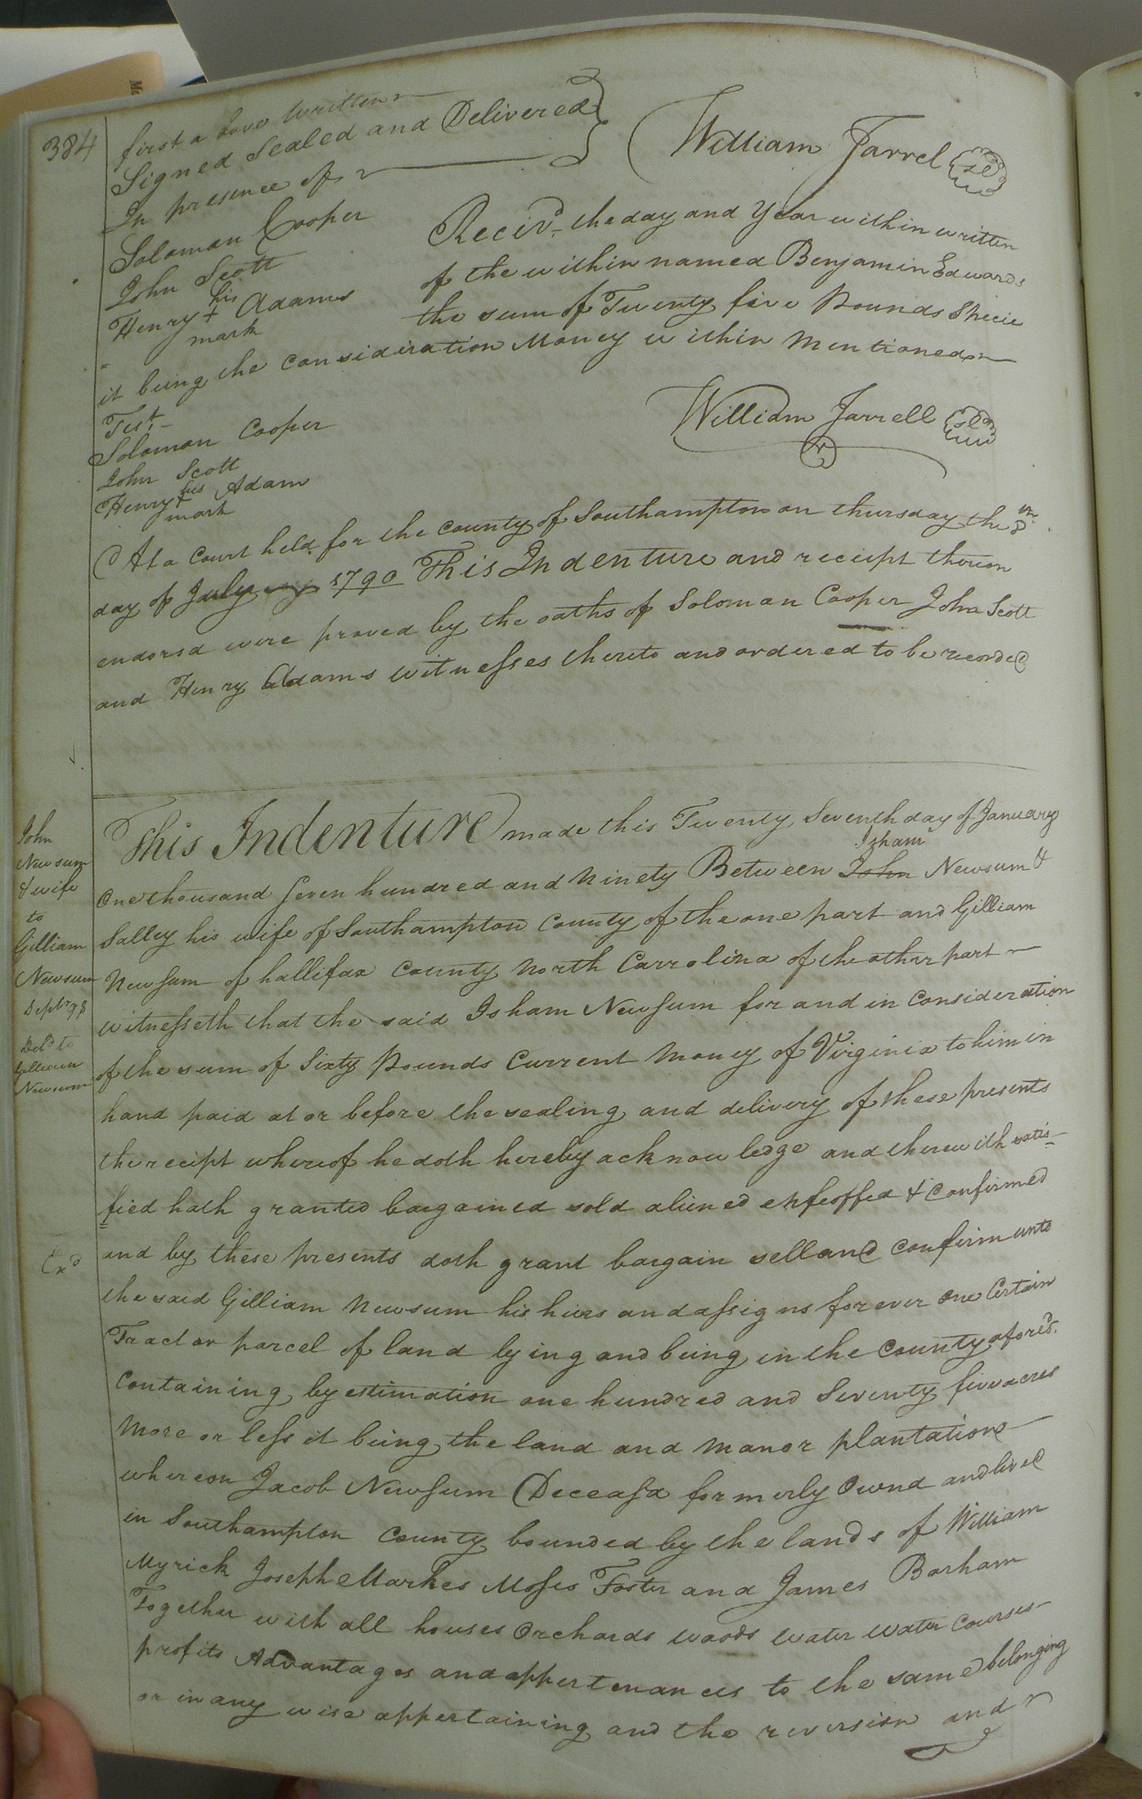 384
first a bove written
Signed Sealed and Delivered
In presence of
William Jarrel
Solomon Cooper
John Scott
Henry his + mark Adams
Reciv.d the day and Year within written
of the within named Benjamin Edwards
the sum of Twenty five Pounds Specie
it being the consideration Money within Mentioned
Test
Solomon Cooper
John Scott
Henry his + mark Adam
William Jarrell
At a court held for the county of Southampton on thursday the 8th
day of July 1790 This Indenture and reciept thereon
endorsd were proved by the oaths of Solomon Cooper John Scott
and Henry Adams witnesses thereto and ordered to be recorded
John
Newsum
& wife
to
Gilliam
Newsum
Deld to
Gilliam
Newsum
Exd
This Indenture made this Twenty Seventh day of January
One thousand Seven hundred and Ninety Between John Isham Newsum &
Salley his wife of Southampton County of the one part and Gilliam
Newsum of hallifax County North Carrolina of the other part
witnesseth that the said Isham Newsum for and in Consideration
of the sum of Sixty Pounds Current Money of Virginia to him in
hand paid at or before the sealing and delivery of these presents
the reciept whereof he doth hereby acknowledge and therewith satis=
=fied hath granted bargained sold aliened enfeoffed & Confirmed
and by these presents doth grant bargain sell and confirm unto
the said Gilliam Newsum his hiers and assigns forever One Certain
Tract or parcel of land lying and being in the County afores.d
Containing by estimation one hundred and Seventy five acres
More or less it being the land and Manor plantation
whereon Jacob Newsum Deceasd formerly Ownd and lived
in Southampton County bounded by the lands of William
Myrick Joseph Markes Moses Foster and James Barham
Together with all houses Orchards woods water water Courses
profits Advantages and appertenances to the same belonging
or in any wise appertaining and the reversion and